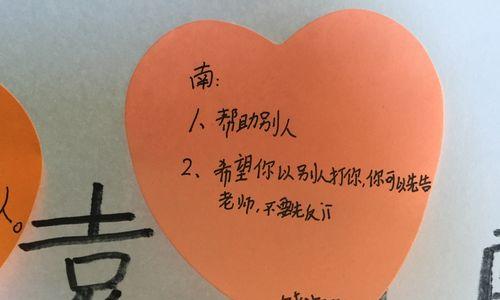 南:
1、帮助别人
2、希望你以别人打你,你可以先告
老师,不要先反
人。